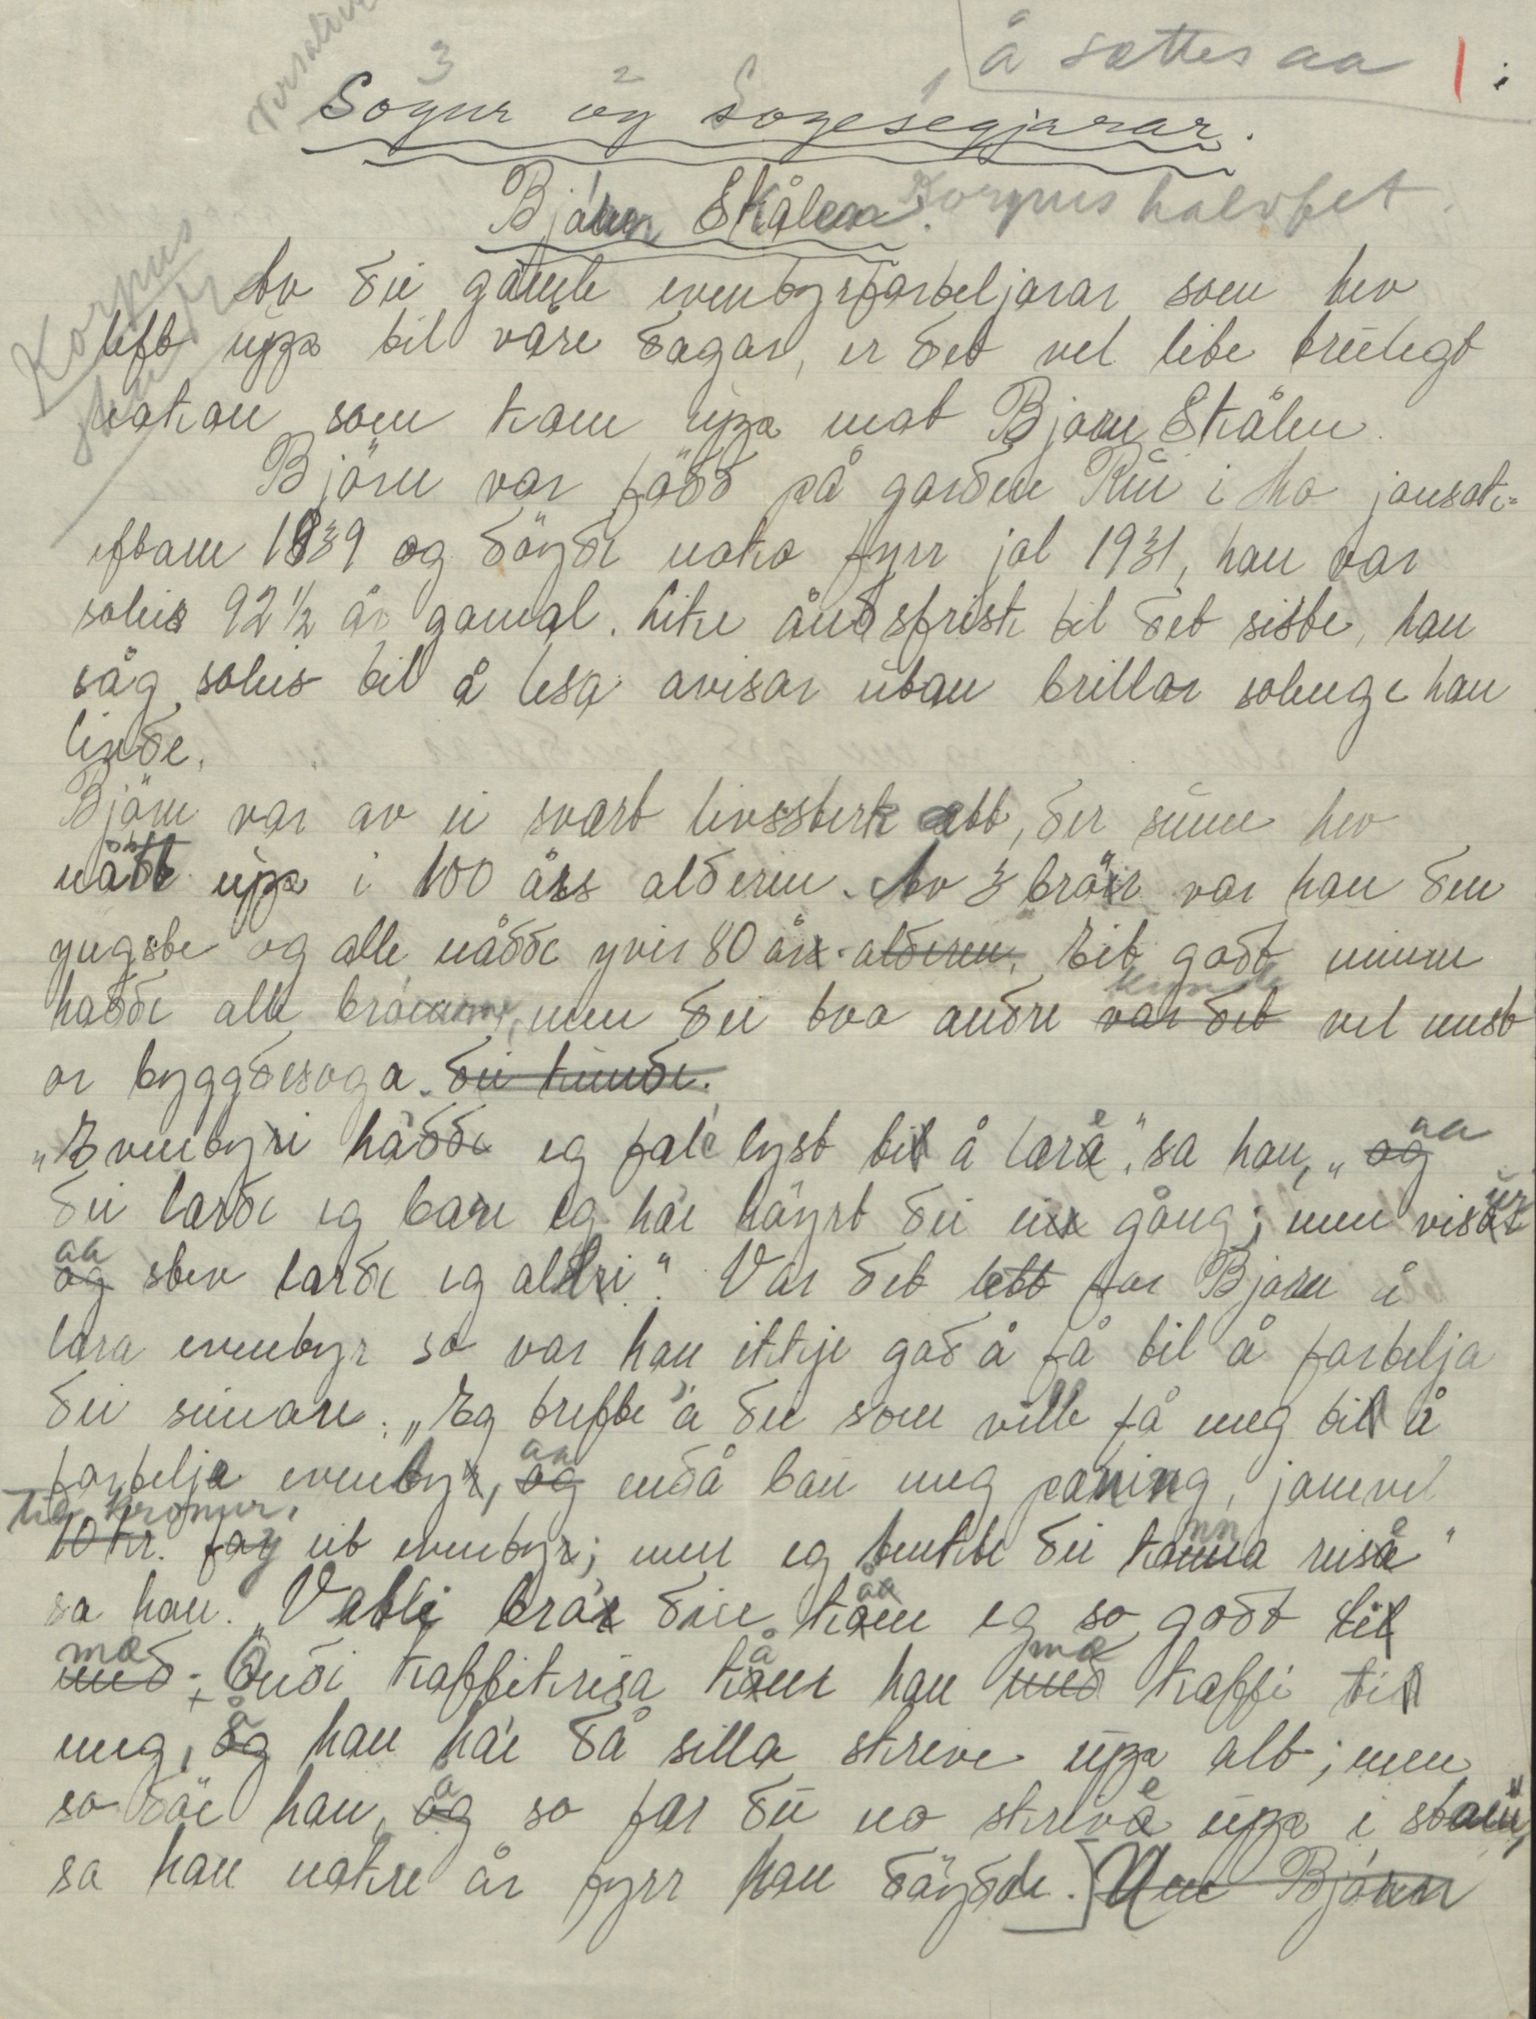 å settes aa 1
3 2 1
Sogur og Sogesegjarar.
Bjørn Skålen. Korpus halvfet.
Korpus
Av dei gamle eventyrforteljarar som hev
left uppa til våre dagar, er det vel lite trulegt
nokon som kom uppa mot Bjørn Skålen.
Bjørn var fødd på garden Rui i Mo jonsok-
eftam 1839 og døyde noko fyrr jol 1931, han var
soleis 92 ½ år gamal. Like åndsfrisk til det siste, han
såg soleis til å lesa avisar utan brillor solenge han
livde.
Bjørn var av ei svært livssterk ætt, der sume hev
nått uppa i 100 års alderen. Av 3 brør var han den
yngste og alle nådde yver 80 år. alderen. Eit godt minne
kunde
hadde alle brørane, men dei two andre var det vel mest
or byggdesoga. dei kunde.
aa
„Eventyri hadde eg fale lyst til å læra," sa han, „og
ur
dei lærde eg bare eg hae høyrt dei ein gång; men visar
aa
og stev lærde eg aldri." Var det lett for Bjørn å
læra eventyr so var han ikkje god å få til å fortelja
dei seinare. „Eg trefte å dei som ville få meg til å
aa
fortelja eventyr, og endå bau meg pæning, jamvel
tie kronur,
10 kr. for eit eventyr; men eg tenkte dei kunna reisa"
nn e
sa han. „Vetle bror din kom eg so godt til
mæ å mæ
med. Undi kaffikrisa kom han med kaffi til
å
meg, og han hae då silla skreve uppa alt; men
å e
so døe han, og so fær du no skriva uppa i staden,"
sa han nokre år fyrr han døyde. Um Bjørn